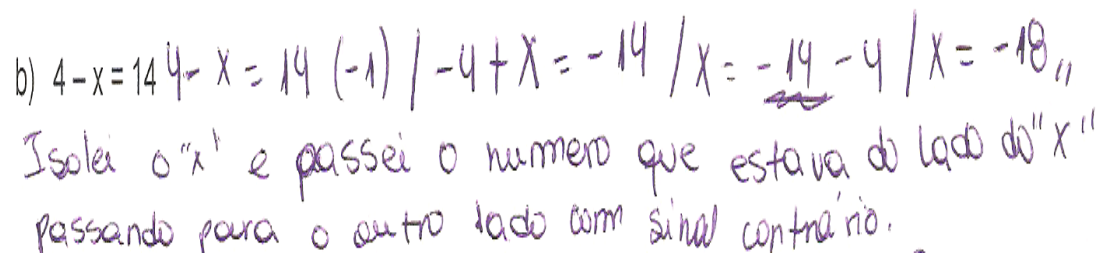 b) 4 – x = 14 4 - x = 14 (-1) / -4 + x = -14 / x = -14 - 4 / x = -18,,
Isolei o "x" e passei o numero que estava do lado do "x"
passando para o outro lado com sinal contrário.